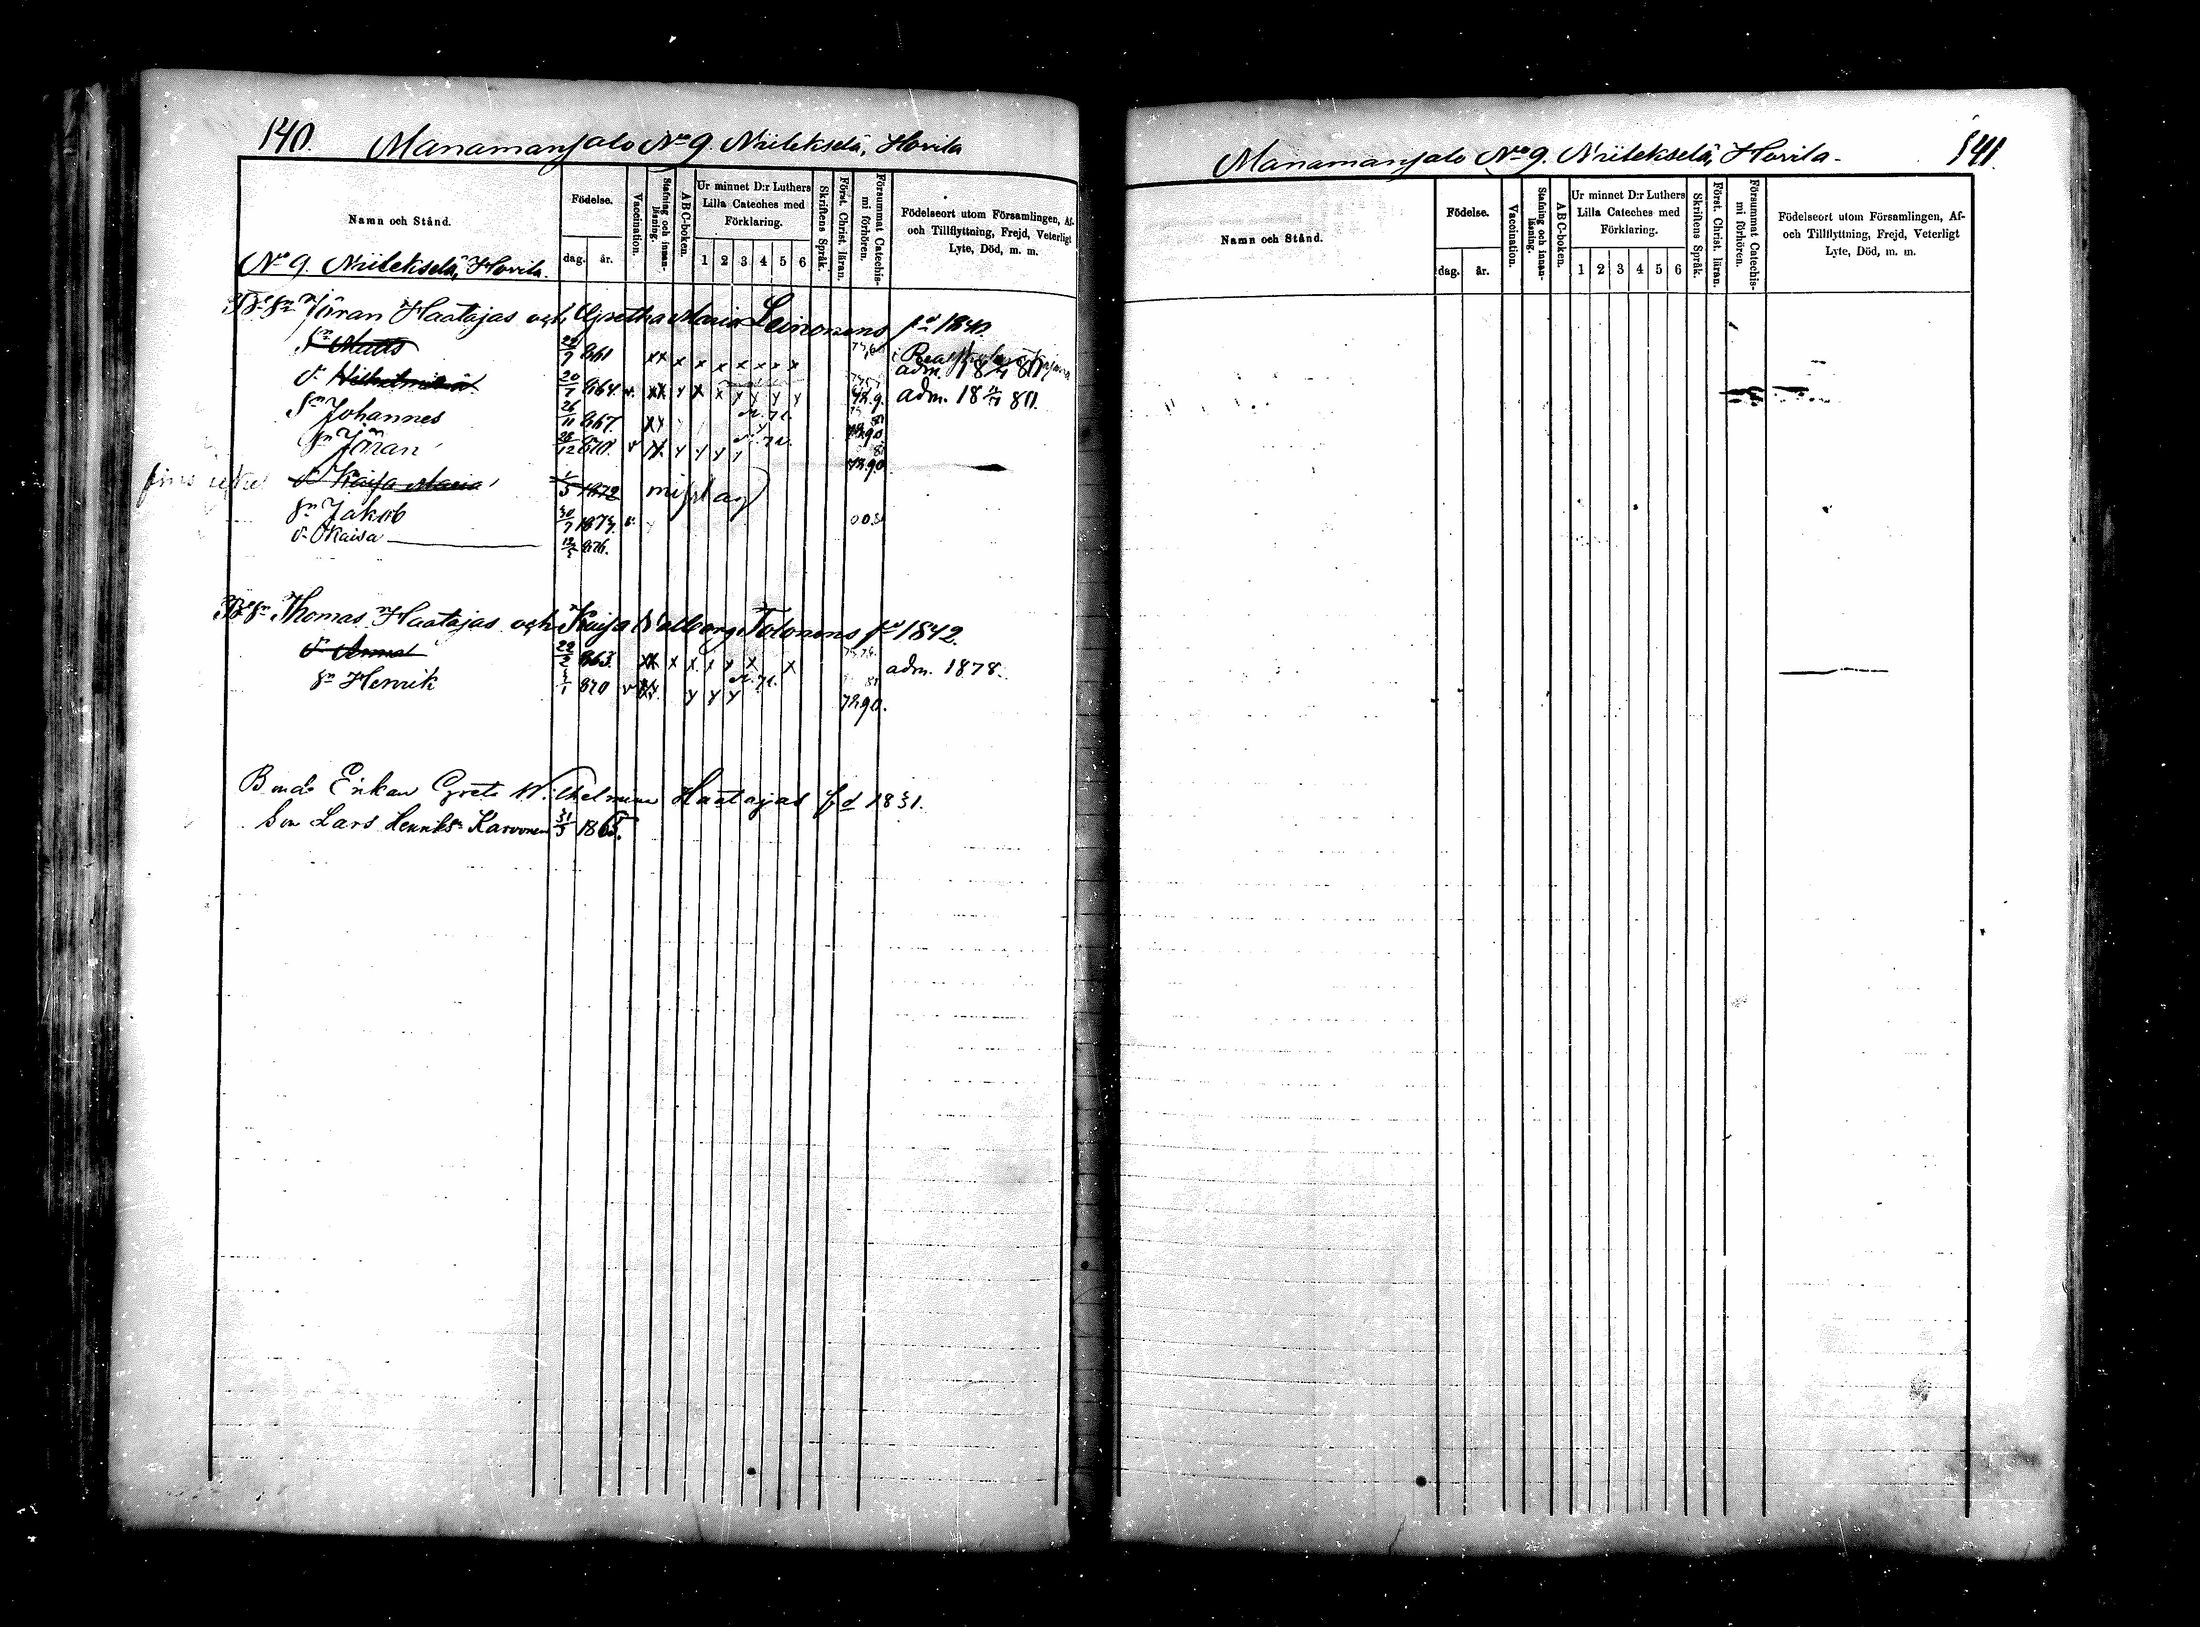 140.
Manamansalo No 9. Niilekselä, Hovila
Namn och Stånd.
Födelse.
dag.
år.
Vaccination.
Stafning och innan-
läsning.
ABC-boken.
Ur minnet D:r Luthers
Lilla Cateches med
Förklaring.
1 2 3 4 5 6
Skriftens Språk.
Först. Christ. läran.
Försummat Catechis-
mi förhören.
Födelseort utom Församlingen, Af-
och Tillflyttning, Frejd, Veterligt
Lyte, Död, m. m.
No 9. Niilekselä, Hovila.
Jöran Haatajas och Gretha Maria Leinonens fd 1840.
Sn Matts 861 xx x x x x x x x
dr Wilhelmina 20/7 864. v. xx y x x y y y y adm. 18 80.
Sn Johannes 26/11 867. xy 90
Sn Jöran 28/12 870. v xx y y y y 78.90
dr Kaisa Maria 1/5 1872 misstag
Sn Jakob 30/7 1873.
dr Kaisa 876.
Thomas Haatajas och Kaisa Valborg Tolonens fd 1842.
dr Anna 22/2 863. xx x x x y x x adm. 1878.
Sn Henrik 1/1 870 v xy y y y 78.90.
Bond. Enkan Greta Wilhelmina Haatajas fd 1831.
Son Lars Henriks Karvonen 31/3 1865.
Manamansalo No 9. Niilekselä, Hovila.
141.
Namn och Stånd.
Födelse.
dag.
år.
Vaccination.
Stafning och innan-
läsning.
ABC-boken.
Ur minnet D:r Luthers
Lilla Cateches med
Förklaring.
1 2 3 4 5 6
Skriftens Språk.
Först. Christ. läran.
Försummat Catechis-
mi förhören.
Födelseort utom Församlingen, Af-
och Tillflyttning, Frejd, Veterligt
Lyte, Död, m. m.